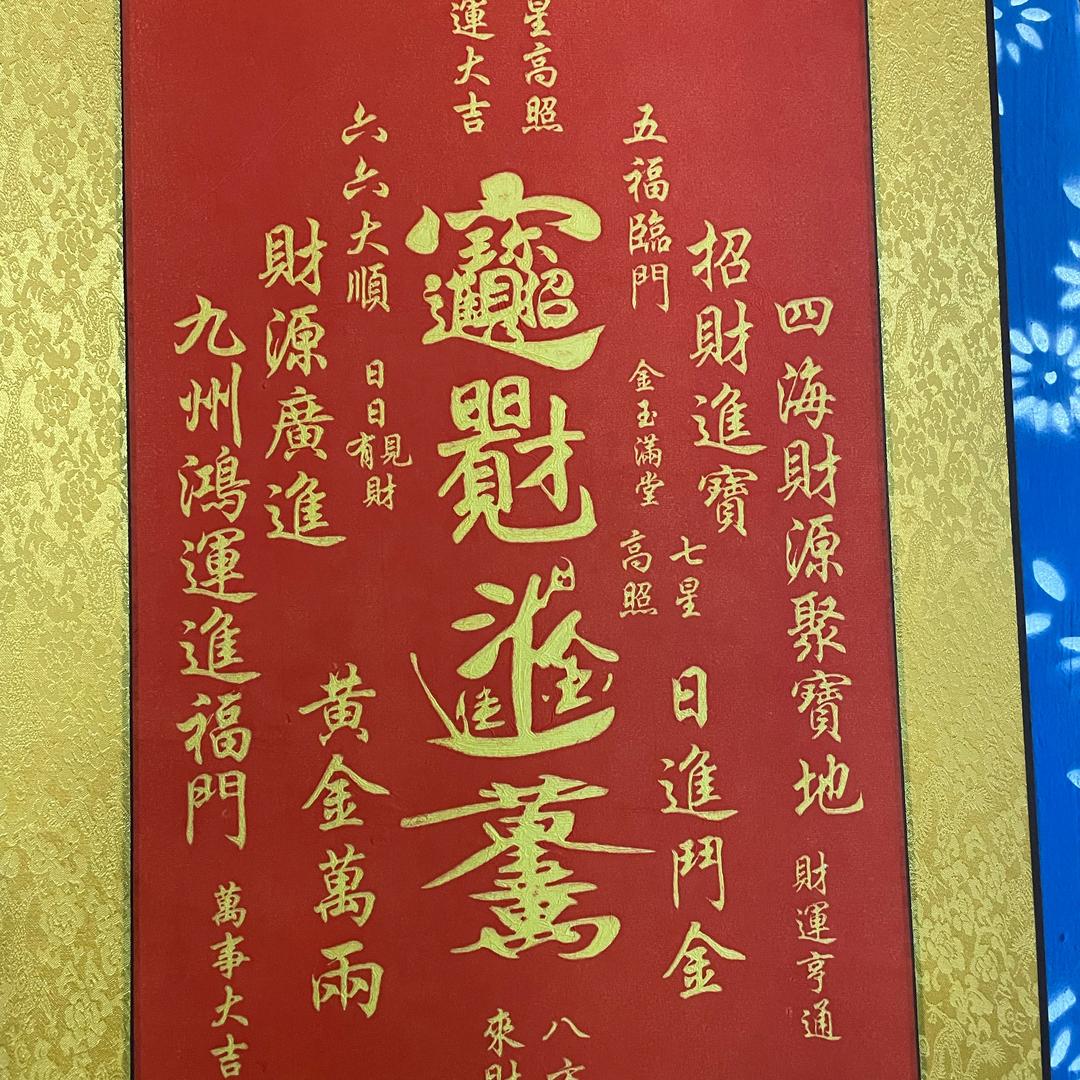 星高照
運大吉
四海財源聚寶地
財運亨通
招財進寶
七星
高照
五福臨門
金玉滿堂
日進鬥金
六六大順
日日有見財
財源廣進
黄金萬兩
九州鴻運進福門
萬事大吉
八方
來財